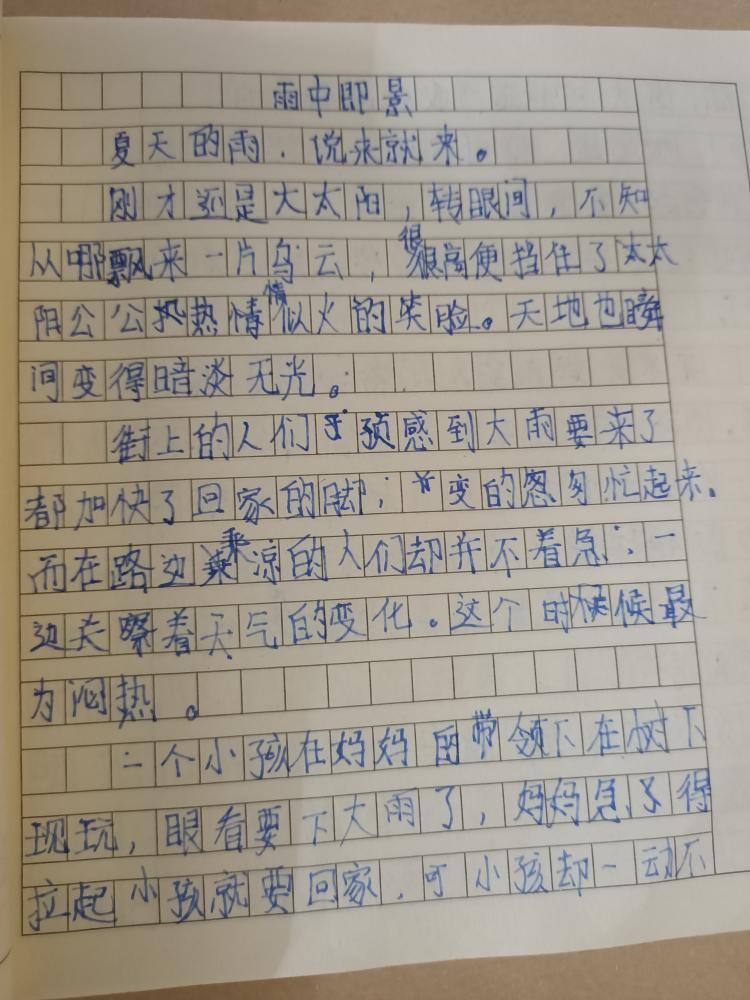 雨中即景
夏天的雨.说来就来。
刚才还是大太阳,转眼间,不知
从哪飘来一片乌云,很很高便挡住了太太
阳公公热热情情似火的笑脸。天地也瞬
间变得暗淡无光。
街上的人们预感到大雨要来了
都加快了回家的脚,变的怱匆忙起来。
而在路边乘凉的人们却并不着急.一
边关嚓着天气的变化。这个时候候最
为闷热。
一个小孩在妈妈的带领下在树下
现玩,眼看要下大雨了,妈妈急了得
拉起小孩就要回家.可小孩却一动不